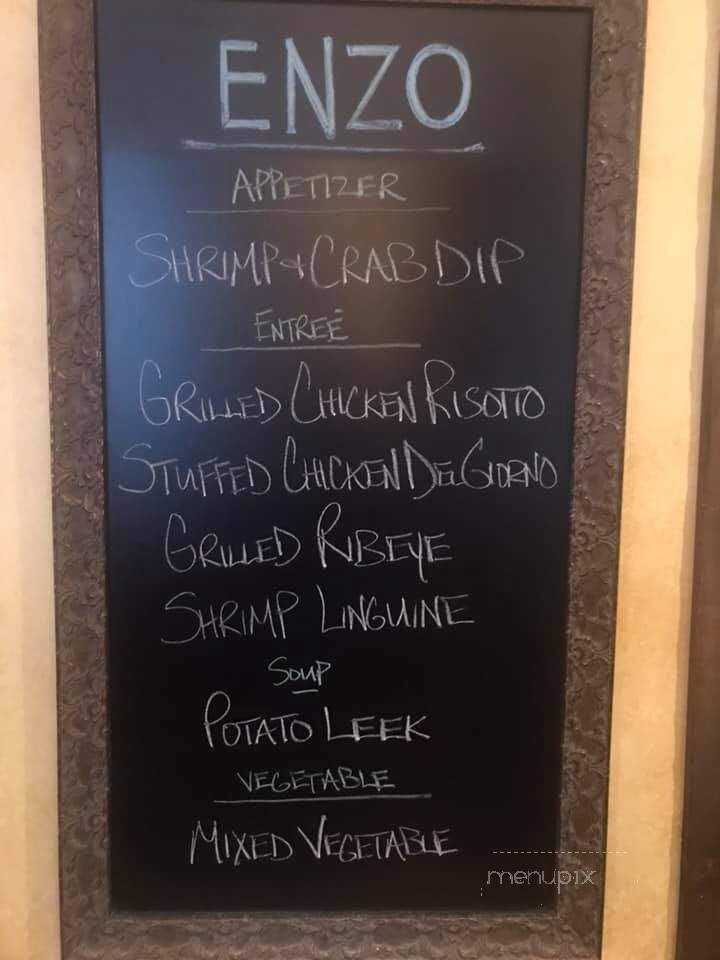 ENZO
APPETIZER
SHRIMP & CRAB DIP
ENTREÉ
GRILLED CHICKEN RISOTTO
STUFFED CHICKEN DEL GIORNO
GRILLED RIBEYE
SHRIMP LINGUINE
SOUP
POTATO LEEK
VEGETABLE
MIXED VEGETABLE
menupix